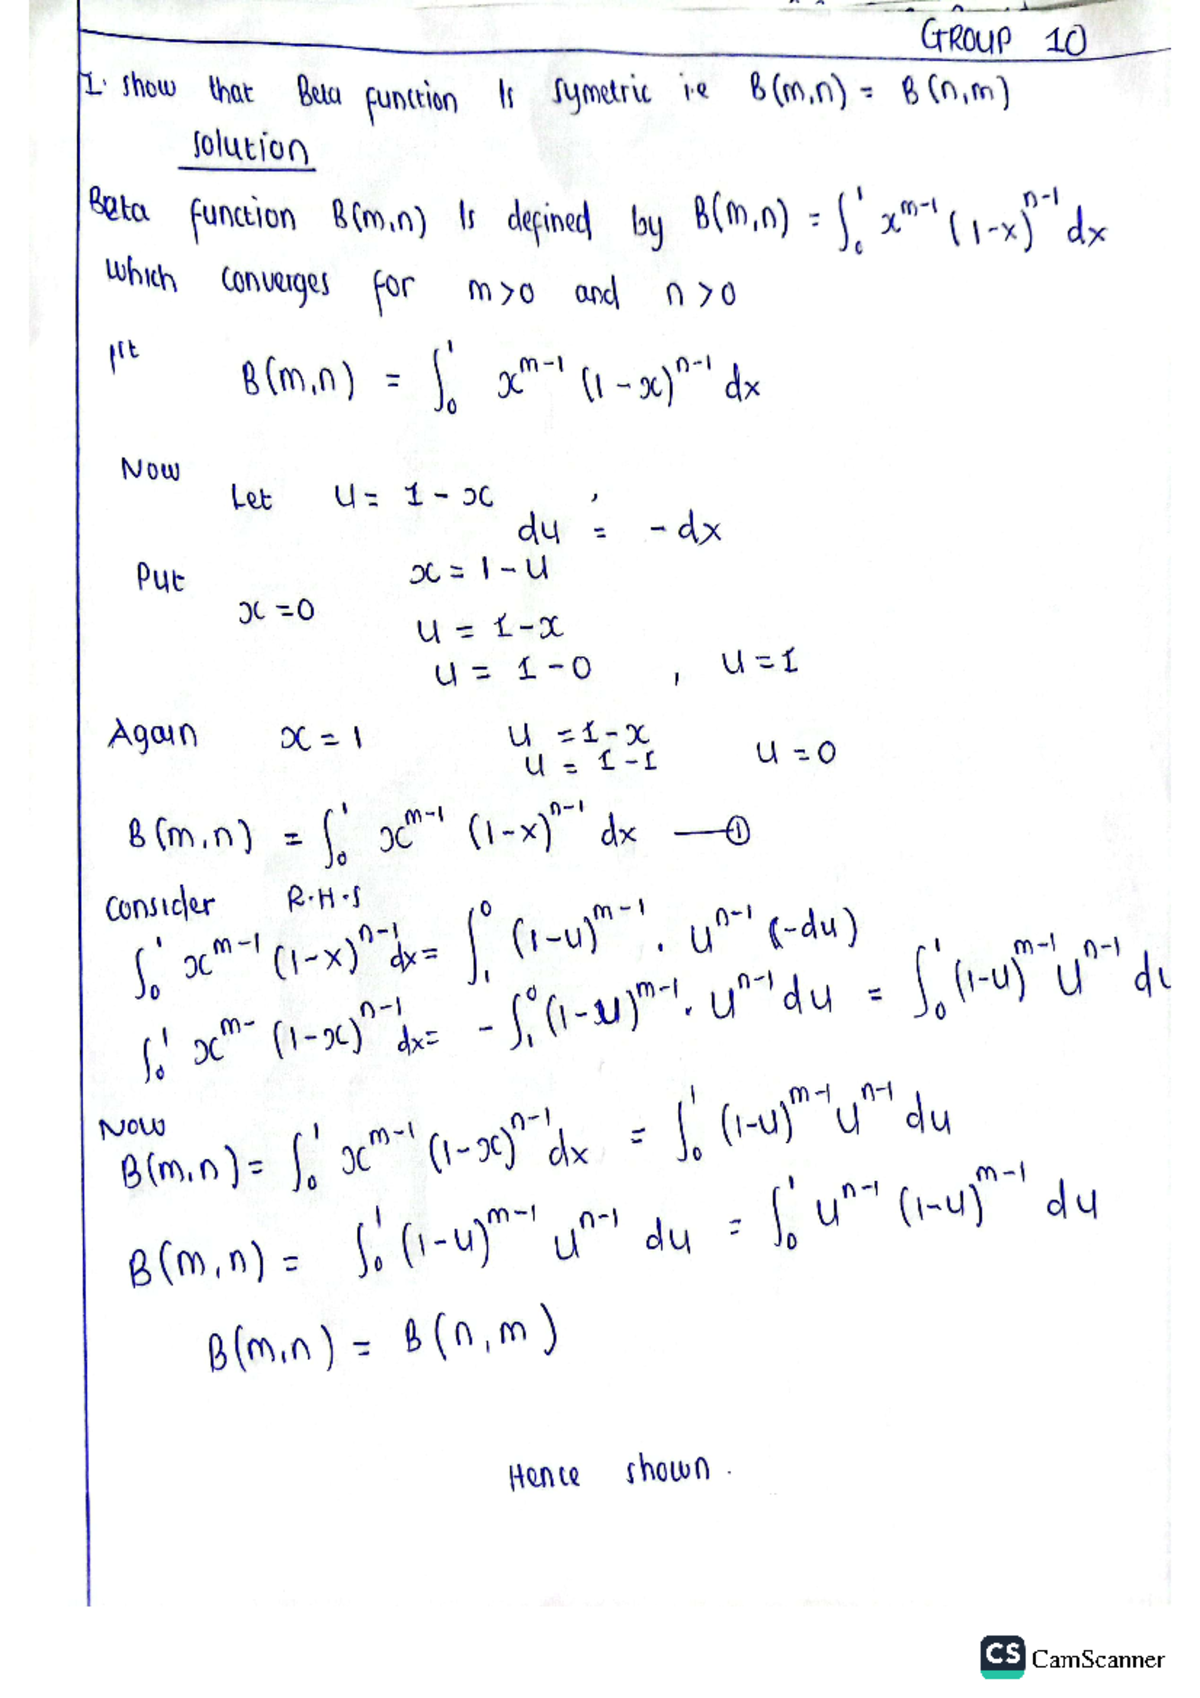 GROUP 10
1. show that Beta function Is symetric i.e B(m,n) = B(n,m)
solution
Beta function B(m,n) Is defined by B(m,n) = ∫₀¹ x^(m-1) (1-x)^(n-1) dx
which converges for m>0 and n>0
B(m,n) = ∫₀¹ x^(m-1) (1-x)^(n-1) dx
Now
Let u = 1-x ,
du = -dx
Put x = 1-u
x=0
u = 1-x
u = 1-0 , u=1
Again x=1 u =1-x
u = 1-1 u=0
B(m,n) = ∫₀¹ x^(m-1) (1-x)^(n-1) dx —①
Consider R.H.S
∫₀¹ x^(m-1) (1-x)^(n-1) dx = ∫₁⁰ (1-u)^(m-1) . u^(n-1) (-du)
∫₀¹ x^(m-) (1-x)^(n-1) dx = -∫₁⁰ (1-u)^(m-1) . u^(n-1) du = ∫₀¹ (1-u)^(m-1) u^(n-1) du
Now
B(m,n) = ∫₀¹ x^(m-1) (1-x)^(n-1) dx = ∫₀¹ (1-u)^(m-1) u^(n-1) du
B(m,n) = ∫₀¹ (1-u)^(m-1) u^(n-1) du = ∫₀¹ u^(n-1) (1-u)^(m-1) du
B(m,n) = B(n,m)
Hence shown.
CS CamScanner